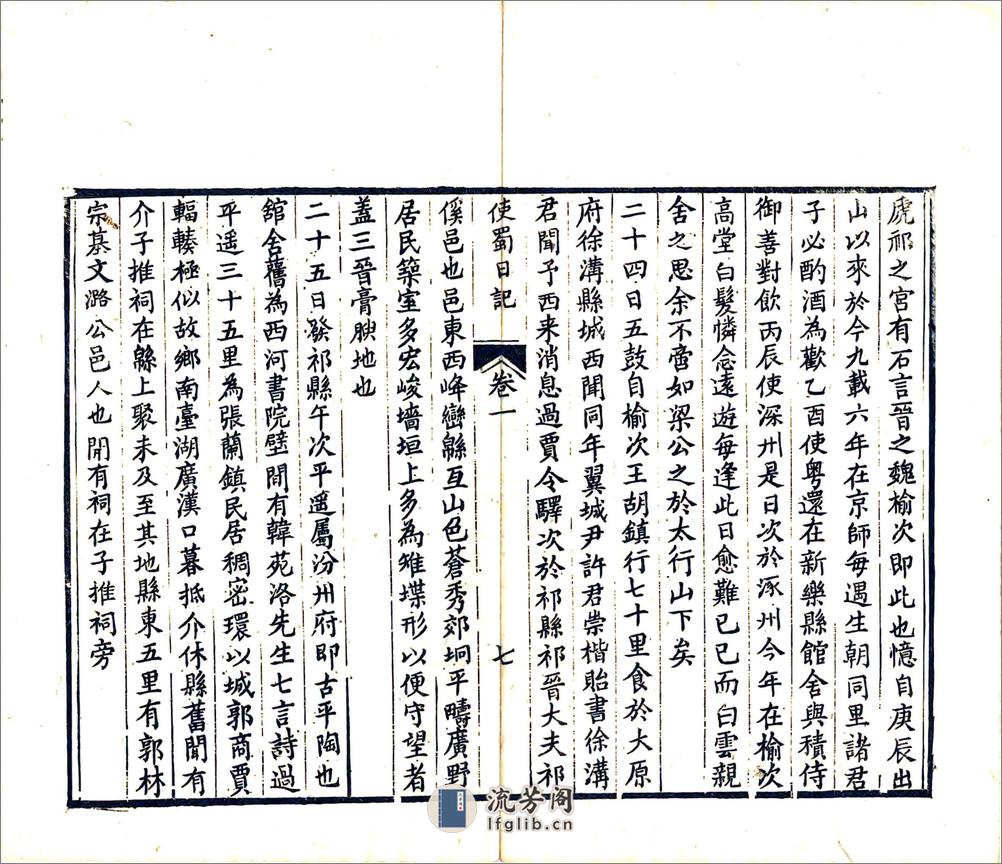 虒祁之宮有石言晉之魏榆次即此也憶自庚辰出
山以來於今九載六年在京師每遇生朝同里諸君
子必酌酒為歡乙酉使粵還在新樂縣館舍與積侍
御善對飲丙辰使深州是日次於涿州今年在榆次
高堂白髮憐念遠遊每逢此日愈難已已而白雲親
舍之思余不啻如梁公之於太行山下矣
二十四日五鼓自榆次王胡鎮行七十里食於大原
府徐溝縣城西聞同年翼城尹許君崇楷貽書徐溝
君聞予西来消息過賈令驛次於祁縣祁晉大夫祁
使蜀日記
卷一
七
傒邑也邑東西峰巒緜亙山色蒼秀郊坰平疇廣野
居民築室多宏峻墻垣上多為雉堞形以便守望者
蓋三晉膏腴地也
二十五日發祁縣午次平遥屬汾州府即古平陶也
舘舍舊為西河書院壁間有韓苑洛先生七言詩過
平遥三十五里為張蘭鎮民居稠密環以城郭商賈
輻輳極似故鄉南臺湖廣漢口暮抵介休縣舊聞有
介子推祠在緜上聚未及至其地縣東五里有郭林
宗墓文潞公邑人也聞有祠在子推祠旁
流芳阁
lfglib.cn